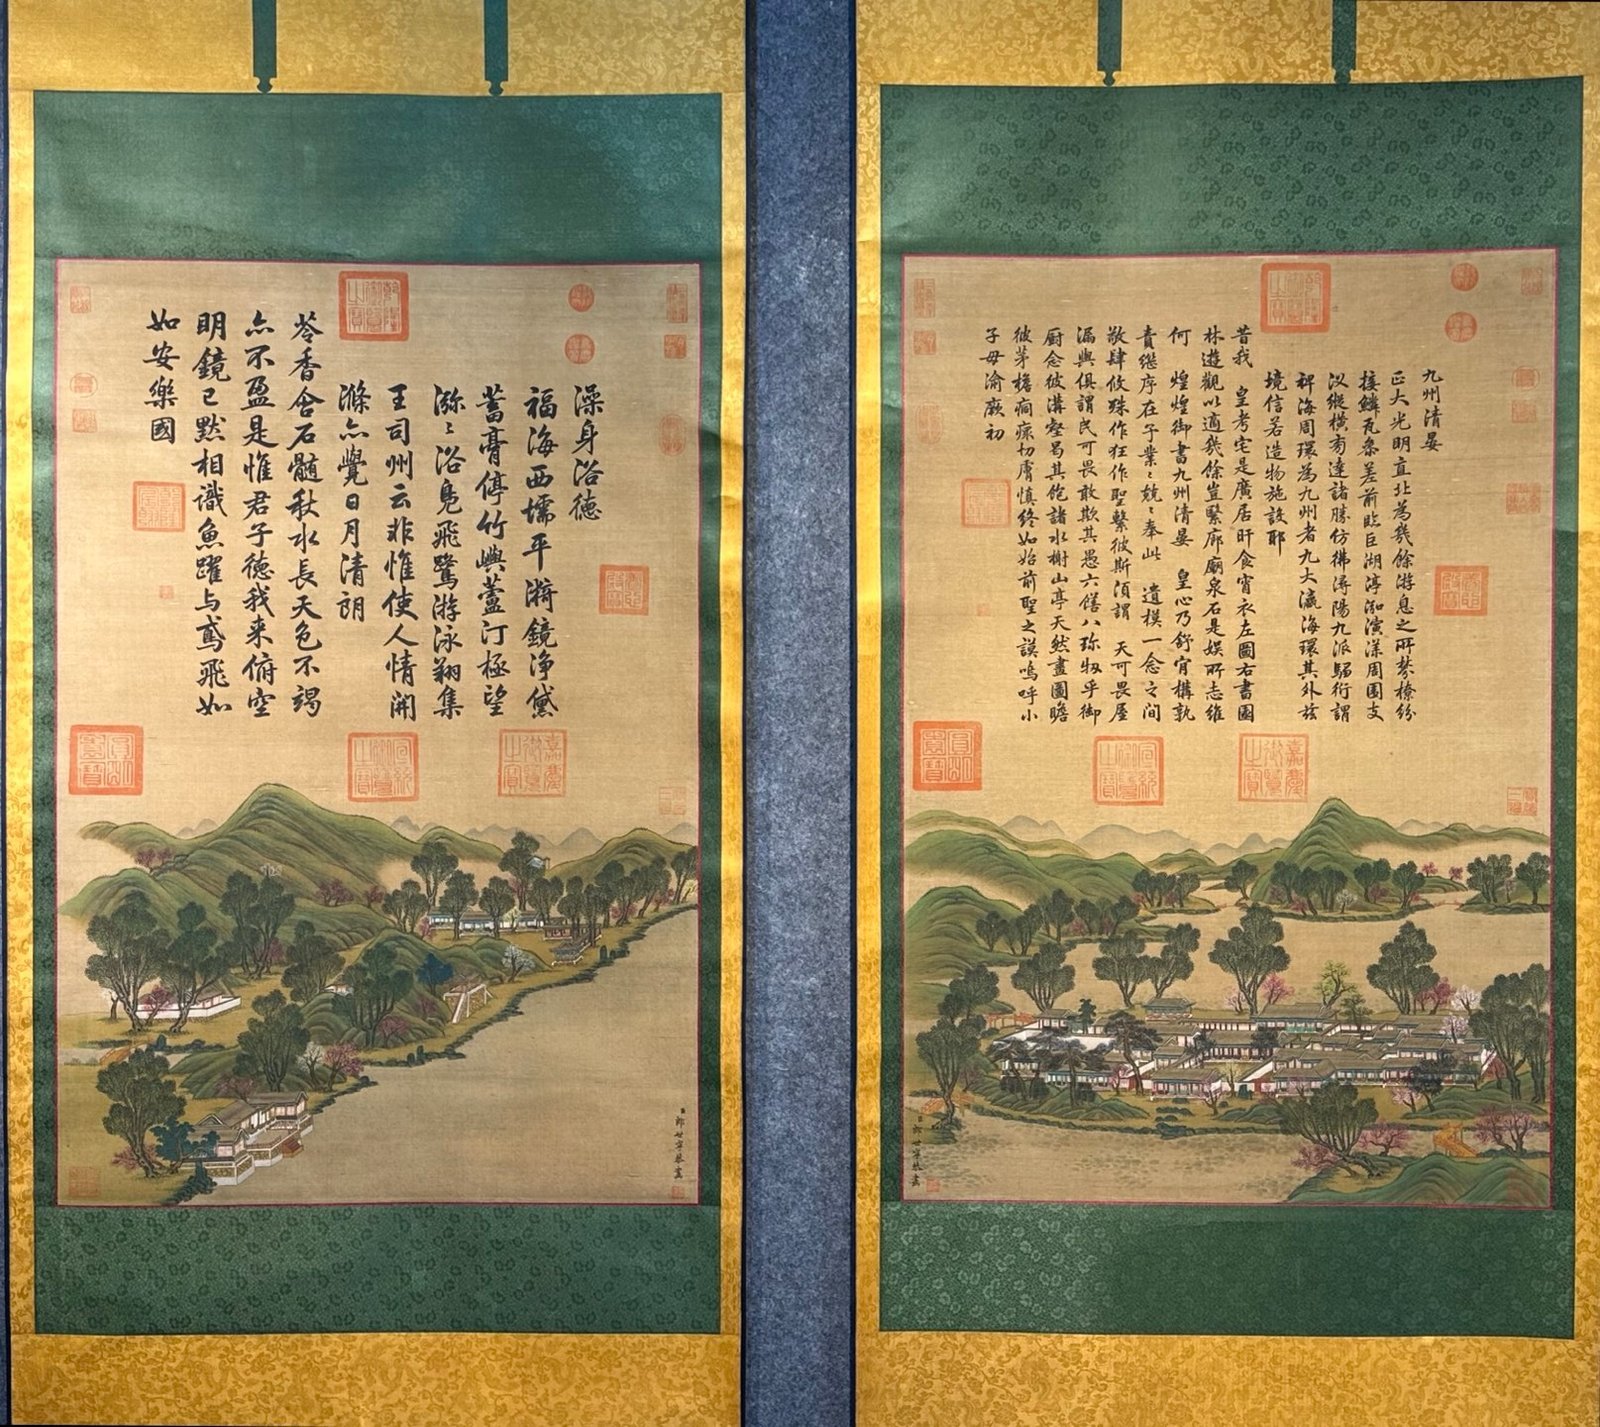 九州清晏
正大光明直北為幾餘游息之所棼橑紛
接鱗瓦參差前臨巨湖渟泓演漾周圍支
汊縱橫旁達諸勝仿彿潯陽九派騶衍謂
裨海周環為九州者九大瀛海環其外茲
境信若造物施設耶
昔我 皇考宅是廣居旰食宵衣左圖右書園
林遊觀以適幾餘豈繄廊廟泉石是娛所志維
何 煌煌御書九州清晏 皇心乃舒肯構孰
責繼序在予業〻兢〻奉此 遺模一念之間
敬肆攸殊作狂作聖繫彼斯須謂 天可畏屋
漏與俱謂民可畏敢欺其愚六膳八珍牣乎御
厨念彼溝壑曷其飽諸水榭山亭天然畫圖瞻
彼茅檐痌瘝切膚慎終如始前聖之謨嗚呼小
子毋渝厥初
乾隆御覽之寶
嘉慶御覽之寶
宣統御覽之寶
臣郎世寧恭畫
澡身浴德
福海西壖平漪鏡淨黛
蓄膏停竹嶼蘆汀極望
瀰〻浴鳧飛鷺游泳翔集
王司州云非惟使人情開
滌亦覺日月清朗
苓香含石髓秋水長天色不竭
亦不盈是惟君子德我來俯空
明鏡已默相識魚躍与鳶飛如
如安樂國
乾隆御覽之寶
嘉慶御覽之寶
宣統御覽之寶
臣郎世寧恭畫